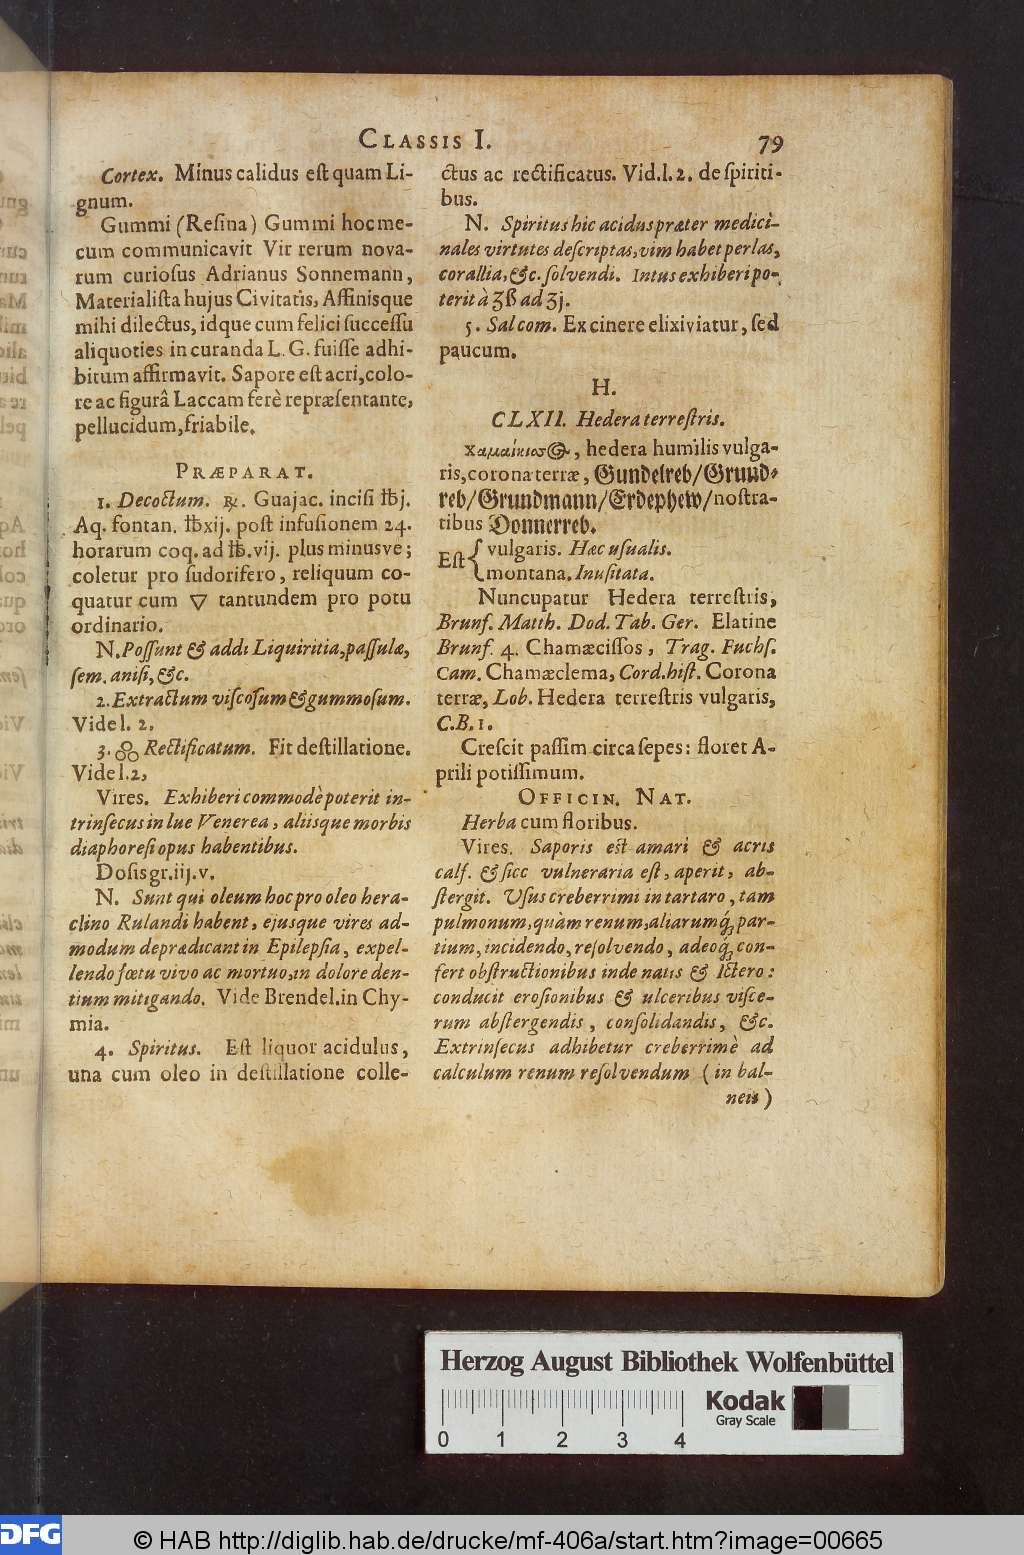 CLASSIS I. 79
Cortex. Minus calidus est quam Li-
gnum.
Gummi (Resina) Gummi hoc me-
cum communicavit Vir rerum nova-
rum curiosus Adrianus Sonnemann,
Materialista hujus Civitatis, Affinisque
mihi dilectus, idque cum felici successu
aliquoties in curanda L. G. fuisse adhi-
bitum affirmavit. Sapore est acri, colo-
re ac figurâ Laccam ferè repræsentante,
pellucidum, friabile.
PRÆPARAT.
1. Decoctum. ℞. Guajac. incisi ℔j.
Aq. fontan. ℔xij. post infusionem 24.
horarum coq. ad ℔.vij. plus minusve;
coletur pro sudorifero, reliquum co-
quatur cum ▽ tantundem pro potu
ordinario.
N. Possunt & addi Liquiritia, passulæ,
sem. anisi, &c.
2. Extractum viscosum & gummosum.
Vide l. 2.
3. Rectificatum. Fit destillatione.
Vide l. 2,
Vires. Exhiberi commodè poterit in-
trinsecus in lue Venerea, aliisque morbis
diaphoresi opus habentibus.
Dosis gr. iij. v.
N. Sunt qui oleum hoc pro oleo hera-
clino Rulandi habent, ejusque vires ad-
modum deprædicant in Epilepsia, expel-
lendo fœtu vivo ac mortuo, in dolore den-
tium mitigando. Vide Brendel. in Chy-
mia.
4. Spiritus. Est liquor acidulus,
una cum oleo in destillatione colle-
ctus ac rectificatus. Vid. l. 2. de spiriti-
bus.
N. Spiritus hic acidus præter medici-
nales virtutes descriptas, vim habet perlas,
corallia, &c. solvendi. Intus exhiberi po-
terit à ʒß ad ʒj.
5. Sal com. Ex cinere elixiviatur, sed
paucum.
H.
CLXII. Hedera terrestris.
Χαμαίκισσος, hedera humilis vulga-
ris, corona terræ, Gundelreb/Grund-
reb/Grundmann/Erdephew/nostra-
tibus Donnerreb.
Est { vulgaris. Hæc usualis.
montana. Inusitata.
Nuncupatur Hedera terrestris,
Brunf. Matth. Dod. Tab. Ger. Elatine
Brunf. 4. Chamæcissos, Trag. Fuchs.
Cam. Chamæclema, Cord. hist. Corona
terræ, Lob. Hedera terrestris vulgaris,
C.B. 1.
Crescit passim circa sepes: floret A-
prili potissimum.
OFFICIN. NAT.
Herba cum floribus.
Vires. Saporis est amari & acris
calf. & sicc vulneraria est, aperit, ab-
stergit. Usus creberrimi in tartaro, tam
pulmonum, quàm renum, aliarumq; par-
tium, incidendo, resolvendo, adeoq; con-
fert obstructionibus inde natis & Ictero:
conducit erosionibus & ulceribus visce-
rum abstergendis, consolidandis, &c.
Extrinsecus adhibetur creberrimè ad
calculum renum resolvendum (in bal-
neis)
Herzog August Bibliothek Wolfenbüttel
Kodak
Gray Scale
0 1 2 3 4
DFG
© HAB http://diglib.hab.de/drucke/mf-406a/start.htm?image=00665